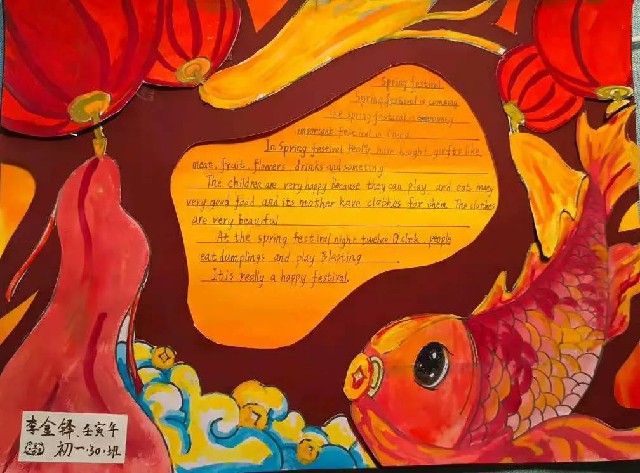 Spring festival
Spring festival is coming
spring festival is
festival in China
In Spring festival People have bought gifts like
meat, fruit, flowers, drinks and someting
The children are very happy Because they can play, and eat many
very good food and its mother have clothes for them. The clothes
are very beautful
At the spring festival night twelve O'clock people
eat dumplings and play
It is really a happy festival.
李金铎、壬寅年
初一·30·班